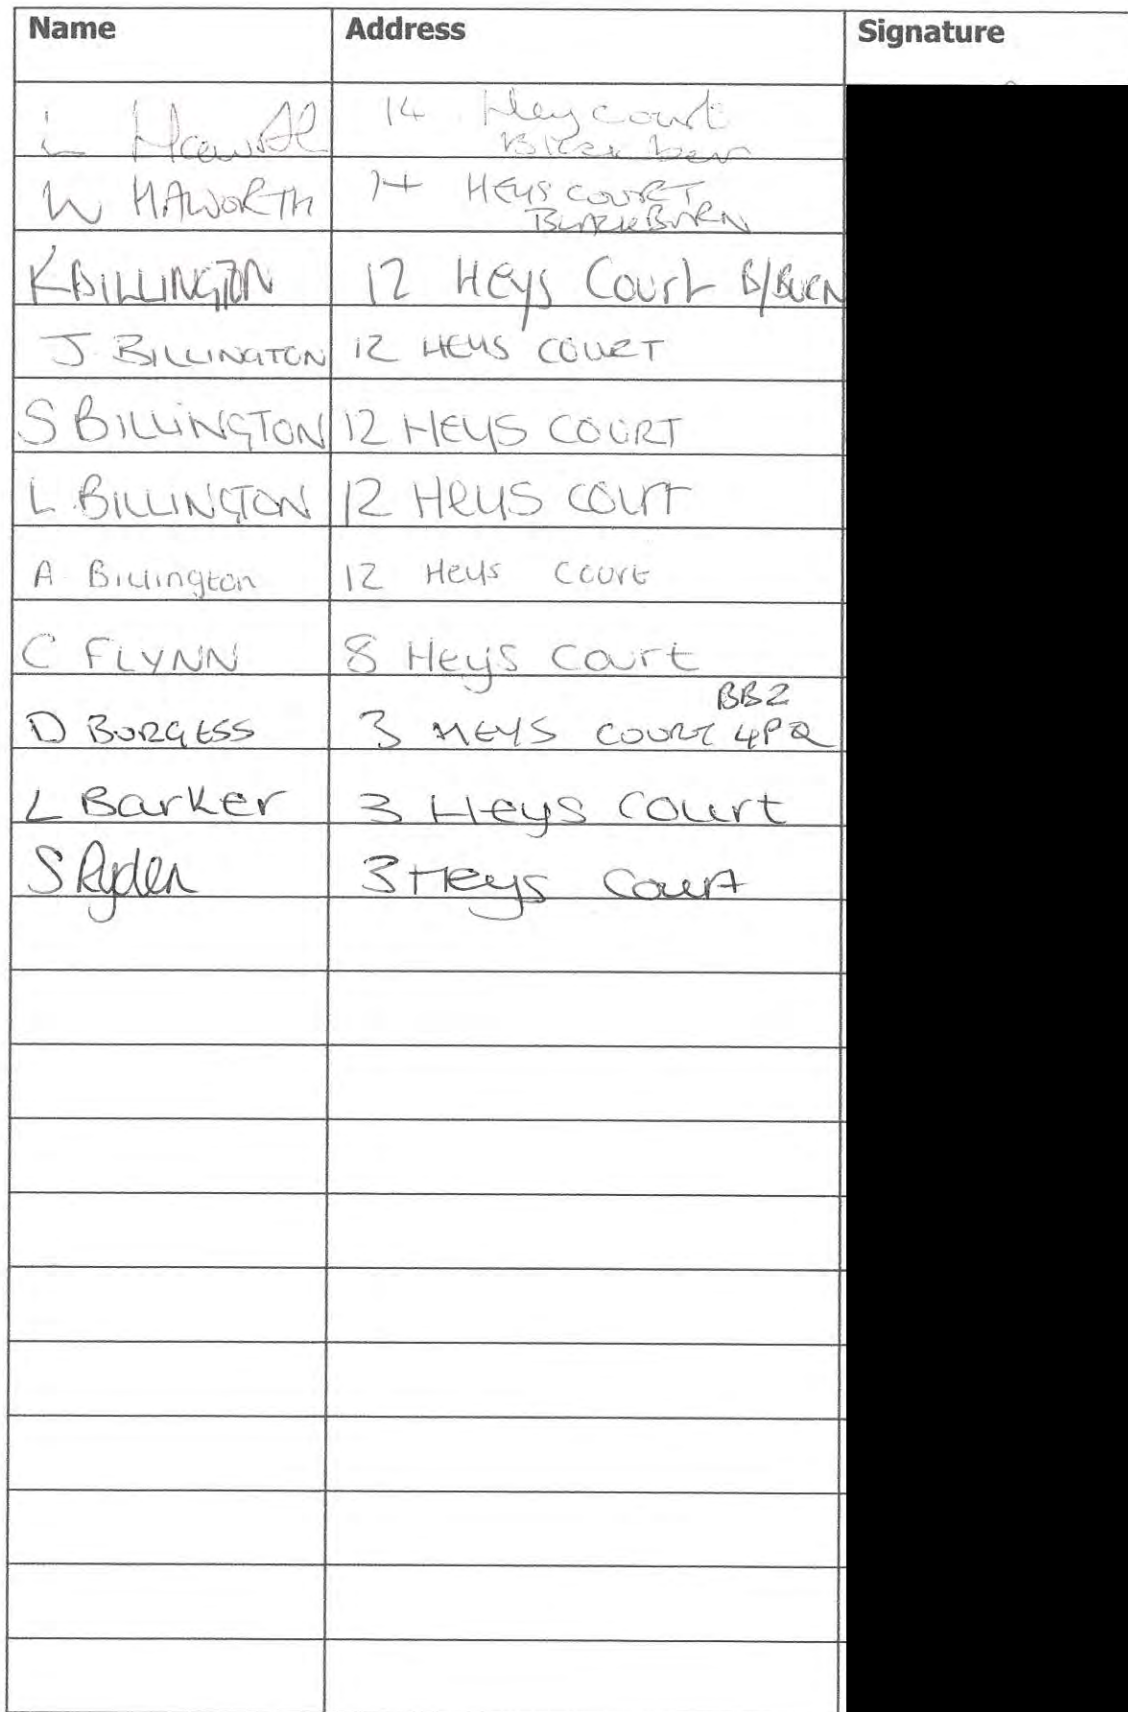 Name Address Signature
L Haworth 14 Hey court
Blackburn
W HAWORTH 14 HEYS COURT
BLACKBURN
K BILLINGTON 12 HEYS Court B/BURN
J. BILLINGTON 12 HEYS COURT
S BILLINGTON 12 HEYS COURT
L. BILLINGTON 12 HEYS COURT
A Billington 12 Heys Court
C FLYNN 8 Heys Court
BB2
D BURGESS 3 HEYS COURT 4PQ
L Barker 3 Heys Court
S Ryden 3 Heys Court